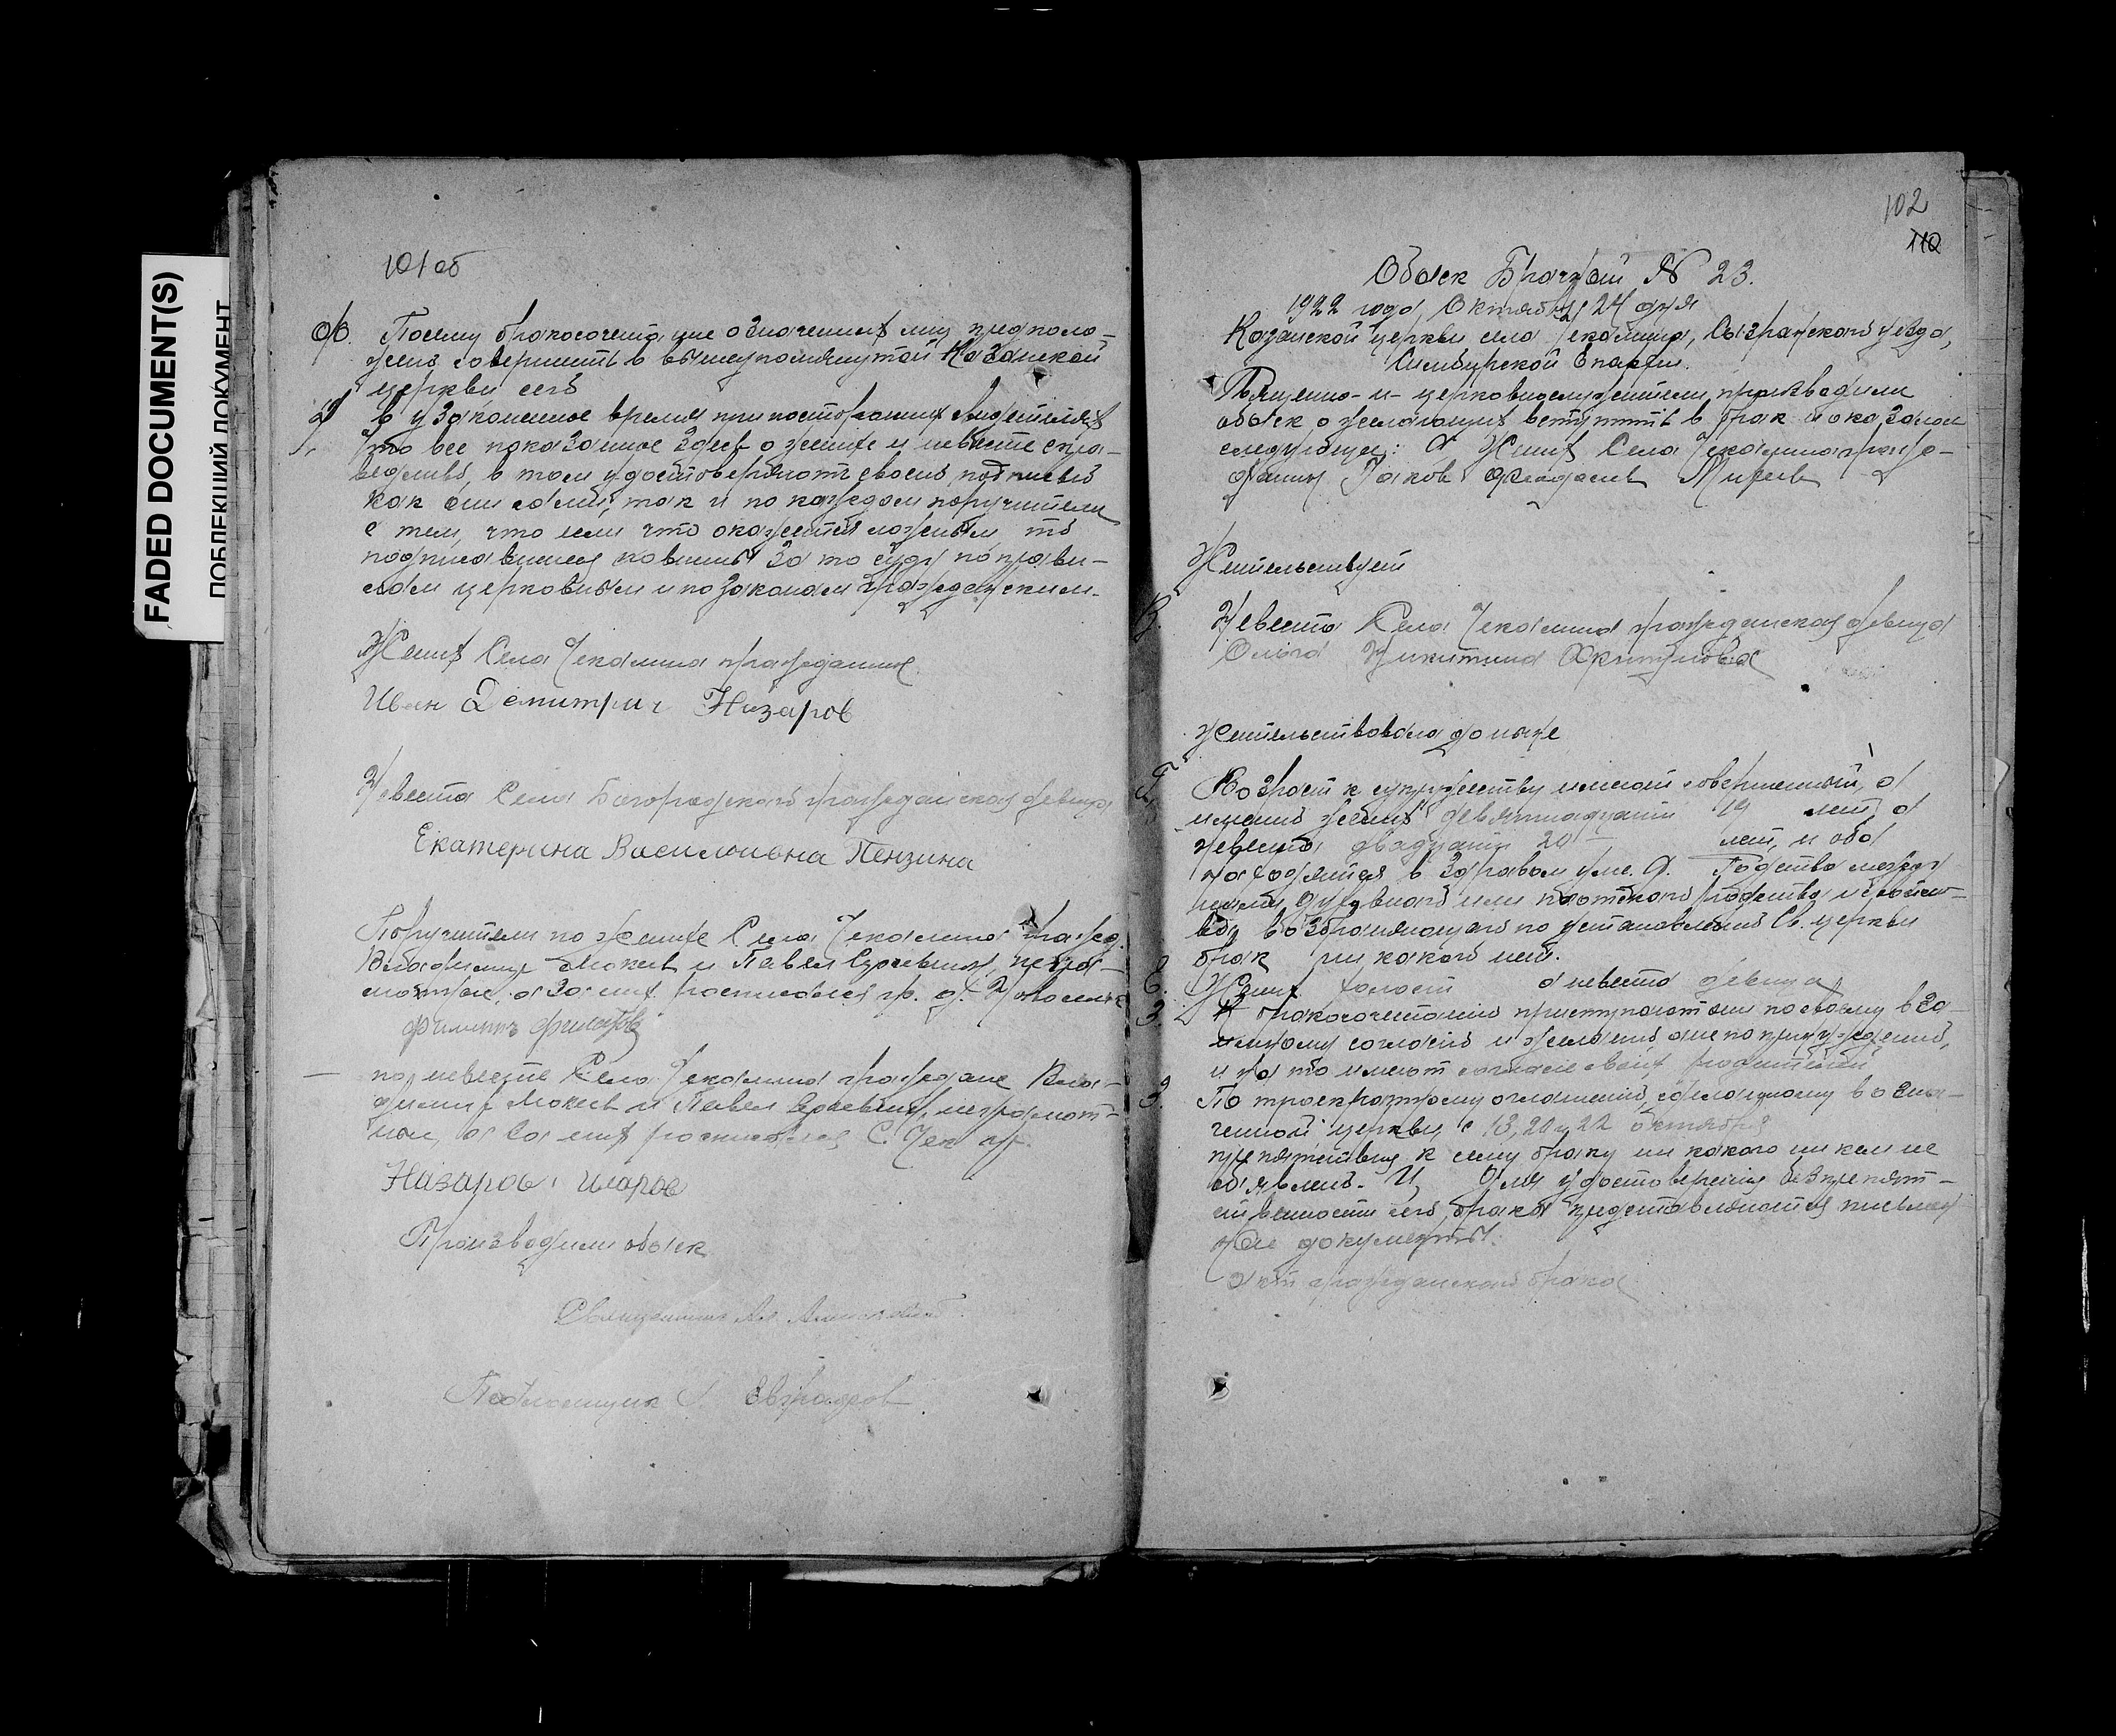 FADED DOCUMENT(S)
ПОБЛЕКШИЙ ДОКУМЕНТ
101 об
Посему бракосочетание означенных лиц предполо-
жено совершить в вышеупомянутой Казанской
церкви сего
в узаконенное время при посторонних свидетелях
Что все показанное здесь о женихе и невесте спра-
ведливо, в том удостоверяют своею подписью
как они сами, так и по каждом поручители
с тем, что если что окажется ложным, то
подписавшиеся повинны за то суду по прави-
лам церковным и по законам гражданским.
Жених Села Чекалина гражданин
Иван Демитрич Назаров
Невеста Села Богородского гражданская девица
Екатерина Васильивна Пензина
Поручители по женихе Села Чекалина гражд.
Владимир Мокеев и Павел негра-
мотные, а за них росписался гр. д.
Филипп Филатов
по невесте Села Чекалина граждане Вла-
димир Мокеев и Павел неграмот-
ные, а за них росписался С. Чек гр.
Назаров
Производили обыск
Священник
Псаломщик
102
110
Обыск Брачный № 23.
1922 года, Октября 24 дня
Казанской церкви села Чекалина, Сызранского уезда,
Симбирской Епархии.
Священно-и-церковнослужители, производили
обыск о желающих вступить в брак и оказалось
следующее: А Жених Села Чекалина граж-
данин Яков
Жительствует
В. Невеста Села Чекалина гражданская девица
Ольга Никитина
Жительствовала до ныне
Г. Возраст к супружеству имеют совершенный, а
именно жених девятнадцати 19 лет, а
невеста двадцати 20 лет, и оба
находятся в здравом уме. Д. Родства между
ними духовного или плотского родства и свойст-
ва, возбраняющаго по установлению Св. церкви
брак никакого нет.
Е. Жених холост а невеста девица
З. К бракосочетанию приступают они по своему вза-
имному согласию и желанию а не по принуждению,
и на то имеют согласие своих родителей
З. По троекратному оглашению, сделанному в озна-
ченной церкви с 13, 20 и 22 октября
препятствия к сему браку никакого ни кем не
объявлено. И, Для удостоверения безпрепят-
ственности сего брака представляются письмен-
ные документы:
акт гражданского брака